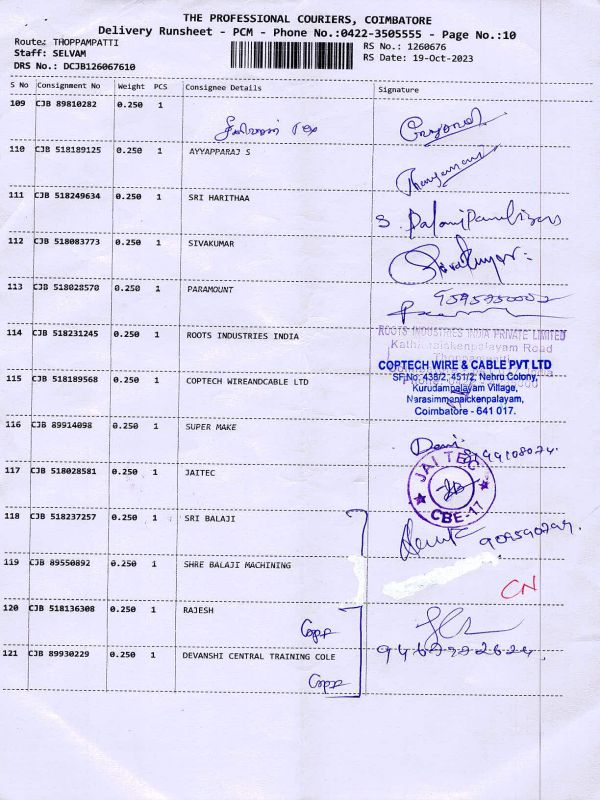 THE PROFESSIONAL COURIERS, COIMBATORE
Delivery Runsheet - PCM - Phone No.:0422-3505555 - Page No.:10
Route: THOPPAMPATTI
Staff: SELVAM
DRS No.: DCJB126067610
RS No.: 1260676
RS Date: 19-Oct-2023
S No Consignment No Weight PCS Consignee Details Signature
109 CJB 89810282 0.250 1
110 CJB 518189125 0.250 1 AYYAPPARAJ S
111 CJB 518249634 0.250 1 SRI HARITHAA
112 CJB 518083773 0.250 1 SIVAKUMAR
113 CJB 518028570 0.250 1 PARAMOUNT
114 CJB 518231245 0.250 1 ROOTS INDUSTRIES INDIA
ROOTS INDUSTRIES INDIA PRIVATE LIMITED
115 CJB 518189568 0.250 1 COPTECH WIREANDCABLE LTD
COPTECH WIRE & CABLE PVT LTD
SF.No. 438/2, 451/2, Nehru Colony,
Kurudampalayam Village,
Narasimmanaickenpalayam,
Coimbatore - 641 017.
116 CJB 89914098 0.250 1 SUPER MAKE
117 CJB 518028581 0.250 1 JAITEC
JAI TEC
CBE-17
118 CJB 518237257 0.250 1 SRI BALAJI
119 CJB 89550892 0.250 1 SHRE BALAJI MACHINING
CN
120 CJB 518136308 0.250 1 RAJESH
121 CJB 89930229 0.250 1 DEVANSHI CENTRAL TRAINING COLE